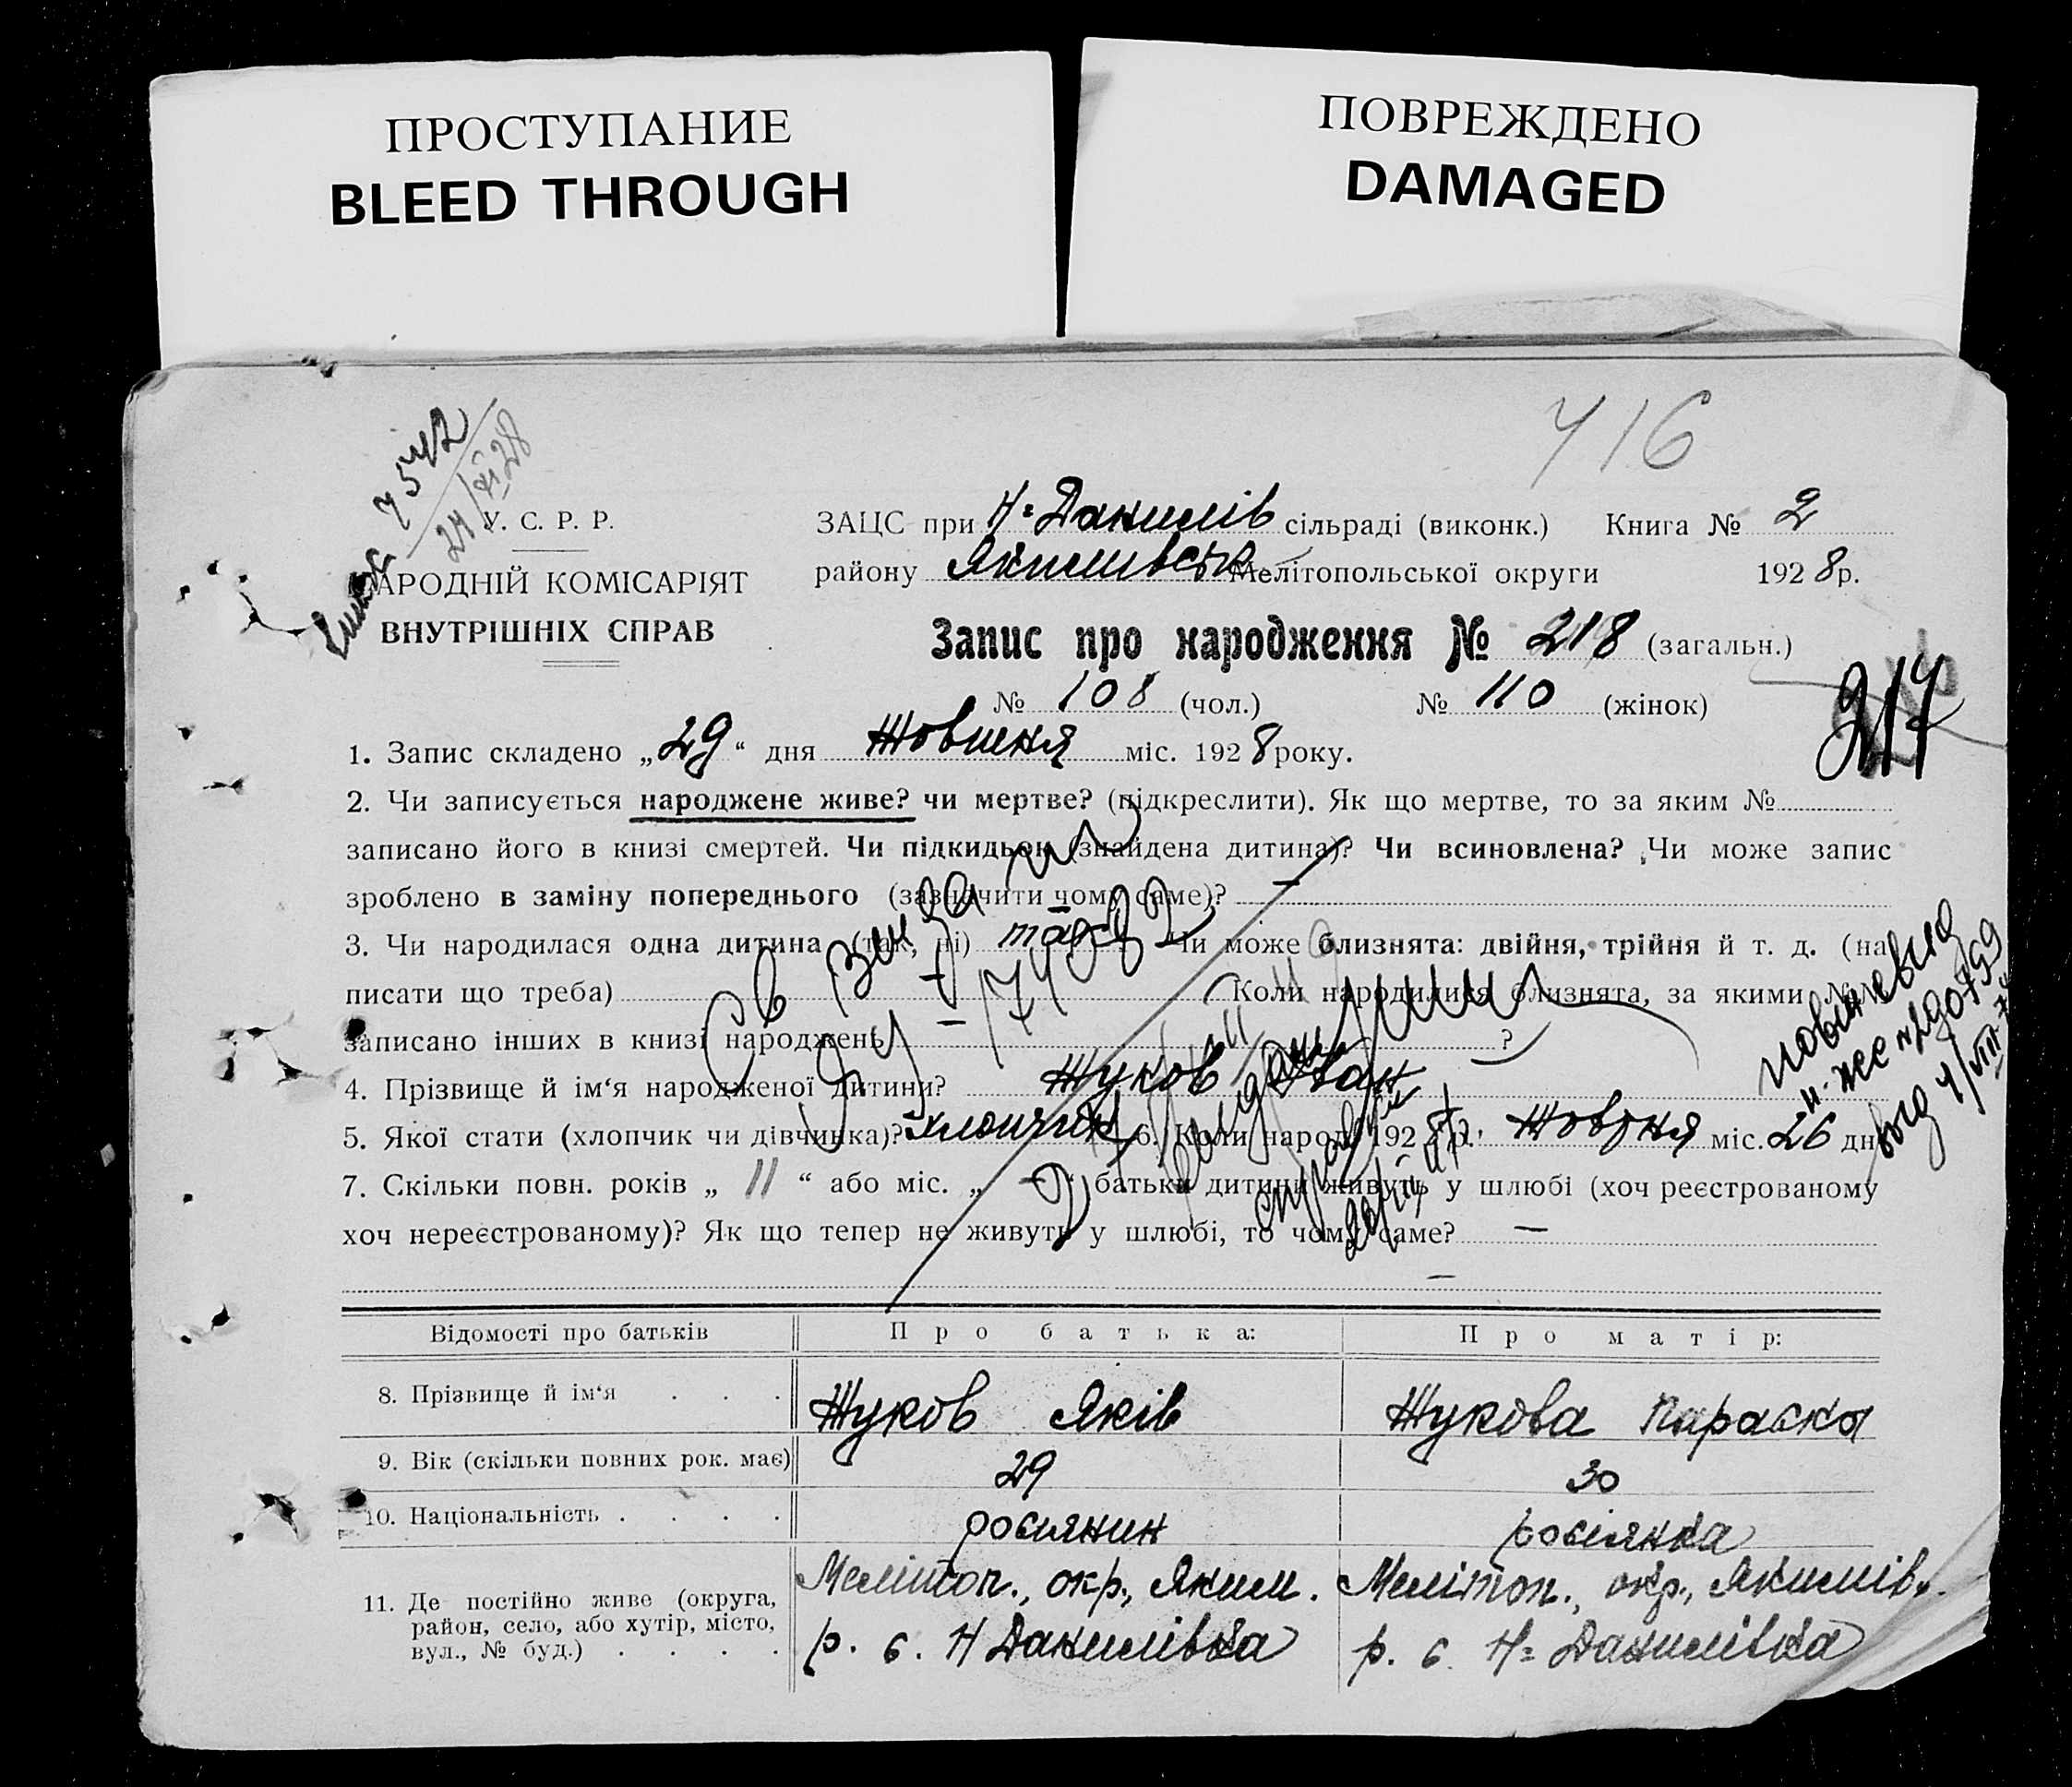 ПРОСТУПАНИЕ
BLEED THROUGH
ПОВРЕЖДЕНО
DAMAGED
716
7542
24/XI 28
У. С. Р. Р.
АРОДНІЙ КОМІСАРІЯТ
ВНУТРІШНІХ СПРАВ
ЗАЦС при Н=Данилів сільраді (виконк.) Книга № 2
району Якимівськ. Мелітопольської округи 1928р.
Запис про народження № 218 (загальн.)
217
№ 108 (чол.) № 110 (жінок)
1. Запис складено „29“ дня Жовтня міс. 1928 року.
2. Чи записується народжене живе? чи мертве? (підкреслити). Як що мертве, то за яким №
записано його в книзі смертей. Чи підкидьок (знайдена дитина)? Чи всиновлена? Чи може запис
зроблено в заміну попереднього (зазначити чому саме)? —
3. Чи народилася одна дитина (так, ні) так Чи може близнята: двійня, трійня й т. д. (на
писати що треба) — Коли народилися близнята, за якими №№
записано інших в книзі народжень — ?
4. Прізвище й ім‘я народженої дитини? Жуков Іван
5. Якої стати (хлопчик чи дівчинка)? хлопчик 6. Коли народ. 1928р. Жовтня міс. 26 дн
7. Скільки повн. років „ 11 “ або міс. „ — “ батьки дитини живуть у шлюбі (хоч реєстрованому
хоч нереєстрованому)? Як що тепер не живуть у шлюбі, то чому саме? —
—
Відомості про батьків Про батька: Про матір:
8. Прізвище й ім‘я . . . Жуков Яків Жукова Параска
9. Вік (скільки повних рок. має) 29 30
10. Національність . . . . росіянин росіянка
11. Де постійно живе (округа, район, село, або хутір, місто, вул., № буд.) . . . .
Меліт​оп., окр., Яким. Мелітоп., окр., Якимів.
р. с. Н Данилівка р. с. Н= Данилівка